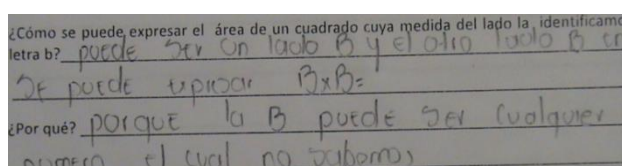 ¿Cómo se puede expresar el área de un cuadrado cuya medida del lado la identificamo
letra b? puede ser un lado B y el otro lado B
Se puede B×B=
¿Por qué? porque la B puede ser cualquier
número el cual no sabemos